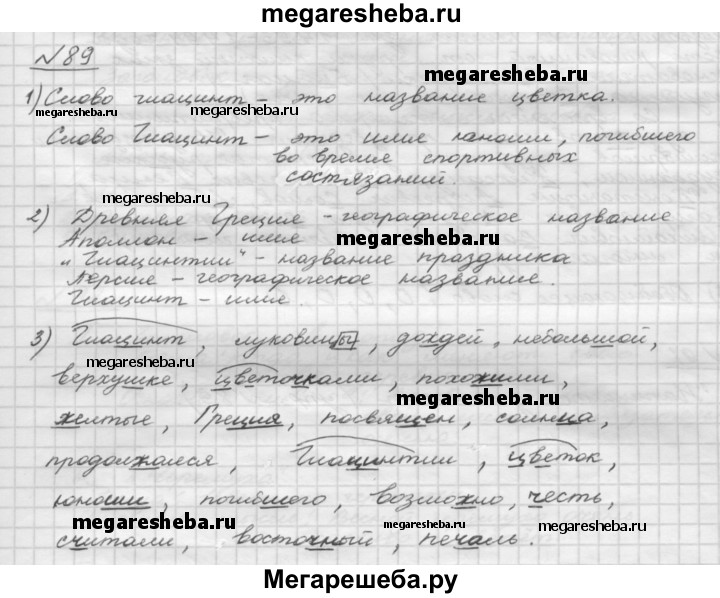 megaresheba.ru
№89
megaresheba.ru
1) Слово гиацинт – это название цветка.
megaresheba.ru
megaresheba.ru
Слово Гиацинт – это имя юноши, погибшего
во время спортивных
состязаний.
megaresheba.ru
2) Древняя Греция – географическое название
Аполлон – имя
megaresheba.ru
„Гиацинтии" – название праздника
Персия – географическое название.
Гиацинт – имя.
3) Гиацинт, луковицы, дождей, небольшой,
megaresheba.ru
верхушке, цветочками, похожими,
megaresheba.ru
желтые, Греция, посвящен, солнца,
продолжался, Гиацинтии, цветок,
юноши, погибшего, возможно, честь,
megaresheba.ru
megaresheba.ru
megaresheba.ru
считали, восточный, печаль.
Мегарешеба.ру